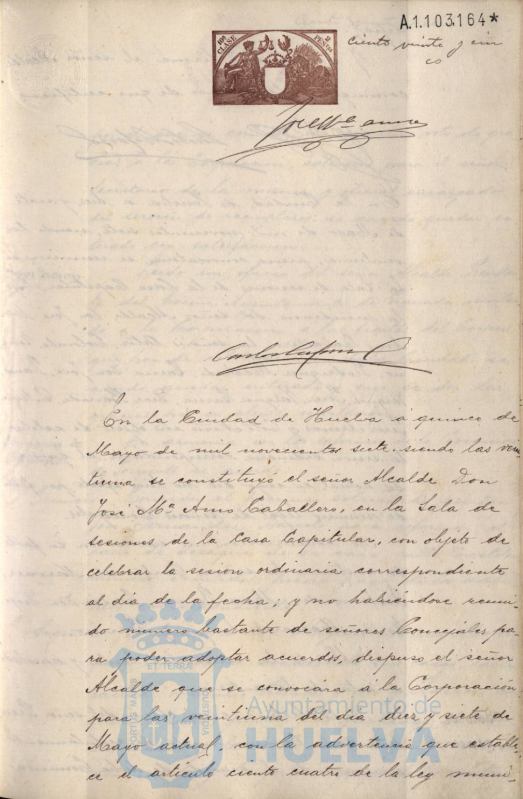 A.1.103.164*
ciento veinte y cin
co
8ª CLASE
2 PESETAS
En la Ciudad de Huelva á quince de
Mayo de mil novecientos siete siendo las vein
tiuna se constituyó el señor Alcalde Don
José Mª Amo Caballero, en la Sala de
sesiones de la Casa Capitular, con objeto de
celebrar la sesion ordinaria correspondiente
al dia de la fecha; y no habiéndose reuni-
do numero bastante de señores Concejales pa
ra poder adoptar acuerdos, dispuso el señor
Alcalde que se convocara á la Corporación
para las veintiuna del dia diez y siete de
Mayo actual, con la advertencia que estable
ce el artículo ciento cuatro de la ley muni
Ayuntamiento de
HUELVA